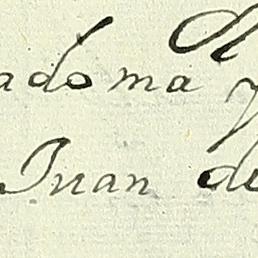 adoma y
Juan de